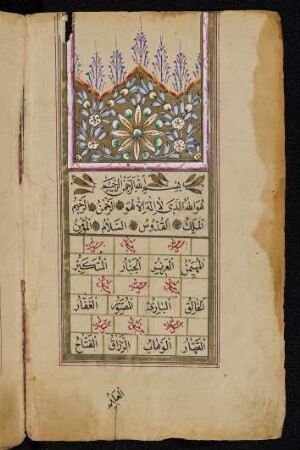 بسم الله الرحمن الرحيم
هو الله الذي لا اله الا هو الرحمن الرحيم
الملك القدوس السلام المؤمن
المهيمن العزيز الجبار المتكبر
الخالق البارئ المصور الغفار
القهار الوهاب الرزاق الفتاح
العليم